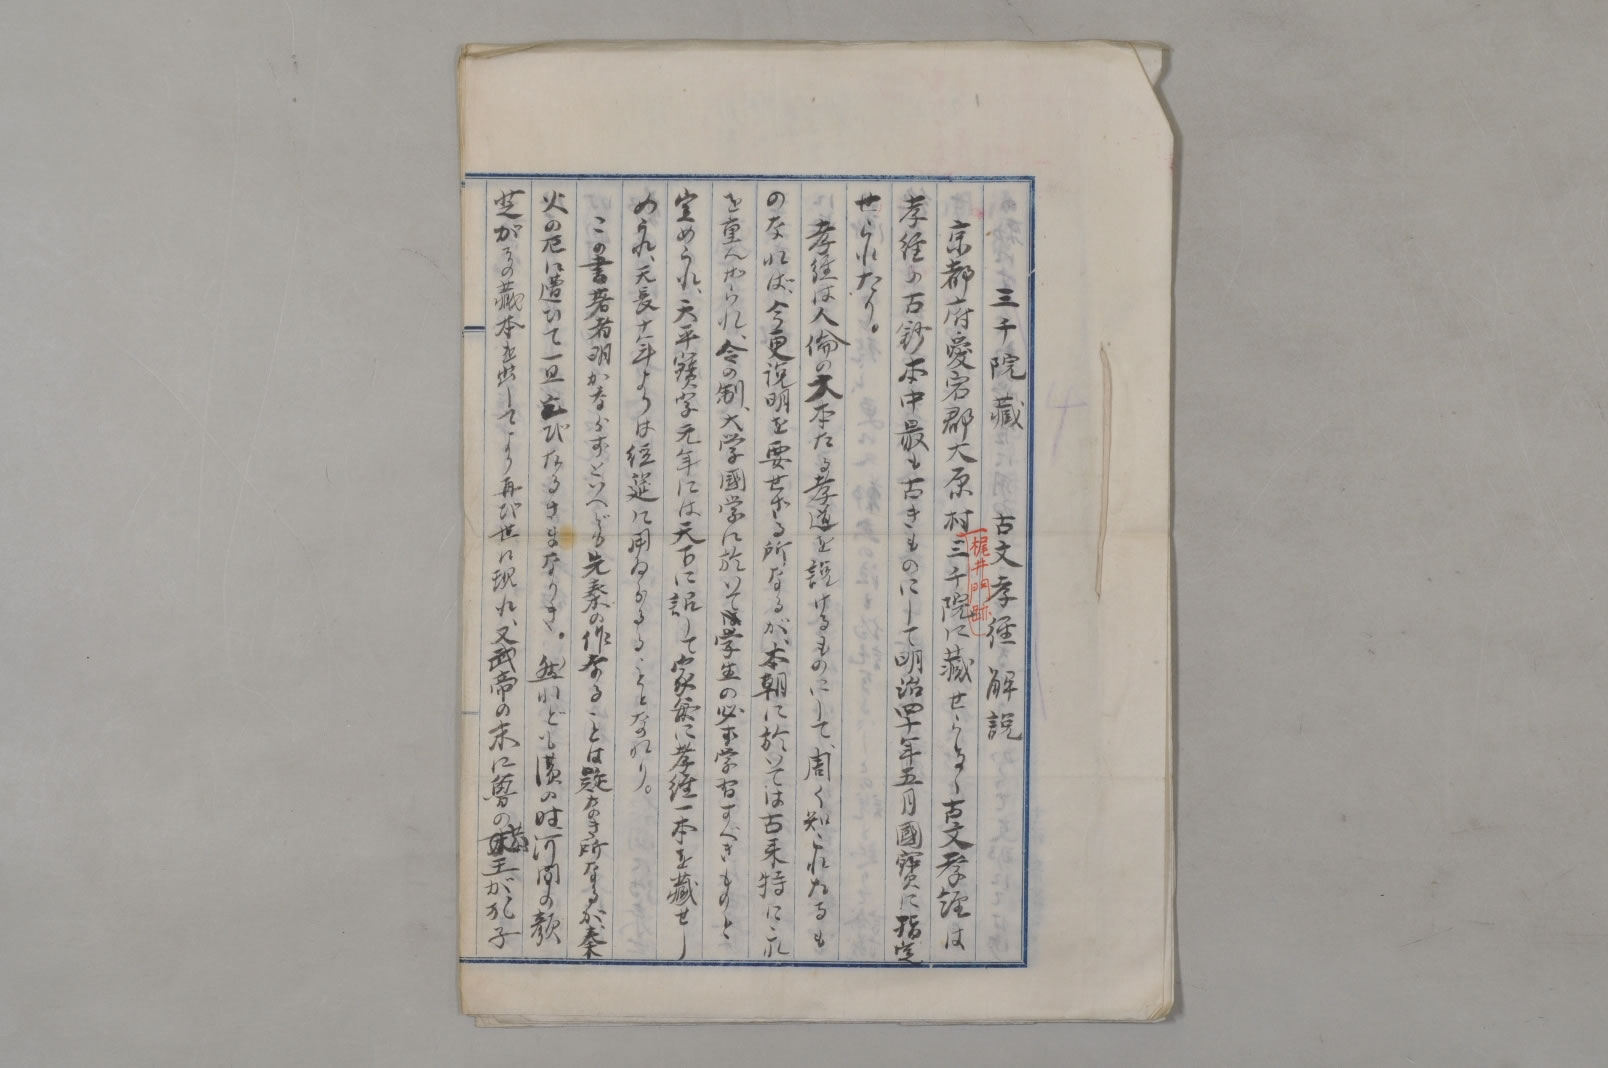 三千院藏　古文孝經解説
京都府愛宕郡大原村梶井門跡三千院に藏せらるゝ古文孝經は
孝經の古鈔本中最も古きものにして明治四十年五月國寶に指定
せられたり。
孝經は人倫の大本たる孝道を説けるものにして、周く知られたるも
のなれば、今更説明を要せざる所なるが、本朝に於いては古来特にこれ
を重んぜられ、令の制、大学國学に於いて学生の必ず学習すべきものと
定められ、天平寶字元年には天下に詔して家毎に孝經一本を藏せし
められ、天長十年よりは經筵に用ゐらるることとなれり。
この書著者明かならずといへども先秦の作なることは疑なき所なるが、秦
火の厄に遭ひて一旦亡びたるさまなりき。然れども漢の時河間の顔
芝がその藏本を出してより再び世に現れ、又武帝の末に魯の恭王が孔子